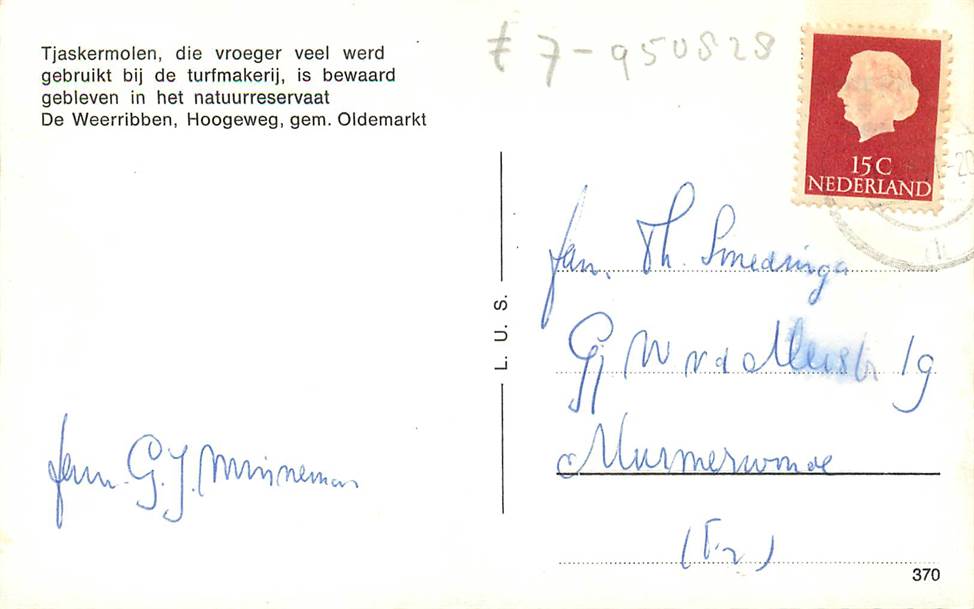 Tjaskermolen, die vroeger veel werd
gebruikt bij de turfmakerij, is bewaard
gebleven in het natuurreservaat
De Weerribben, Hoogeweg, gem. Oldemarkt
7-950828
15 C
NEDERLAND
-20
L. U. S.
fam. Th. Smedinga
Gj W v d 19
Murmerwoude
(Fr)
fam. G. J.
370